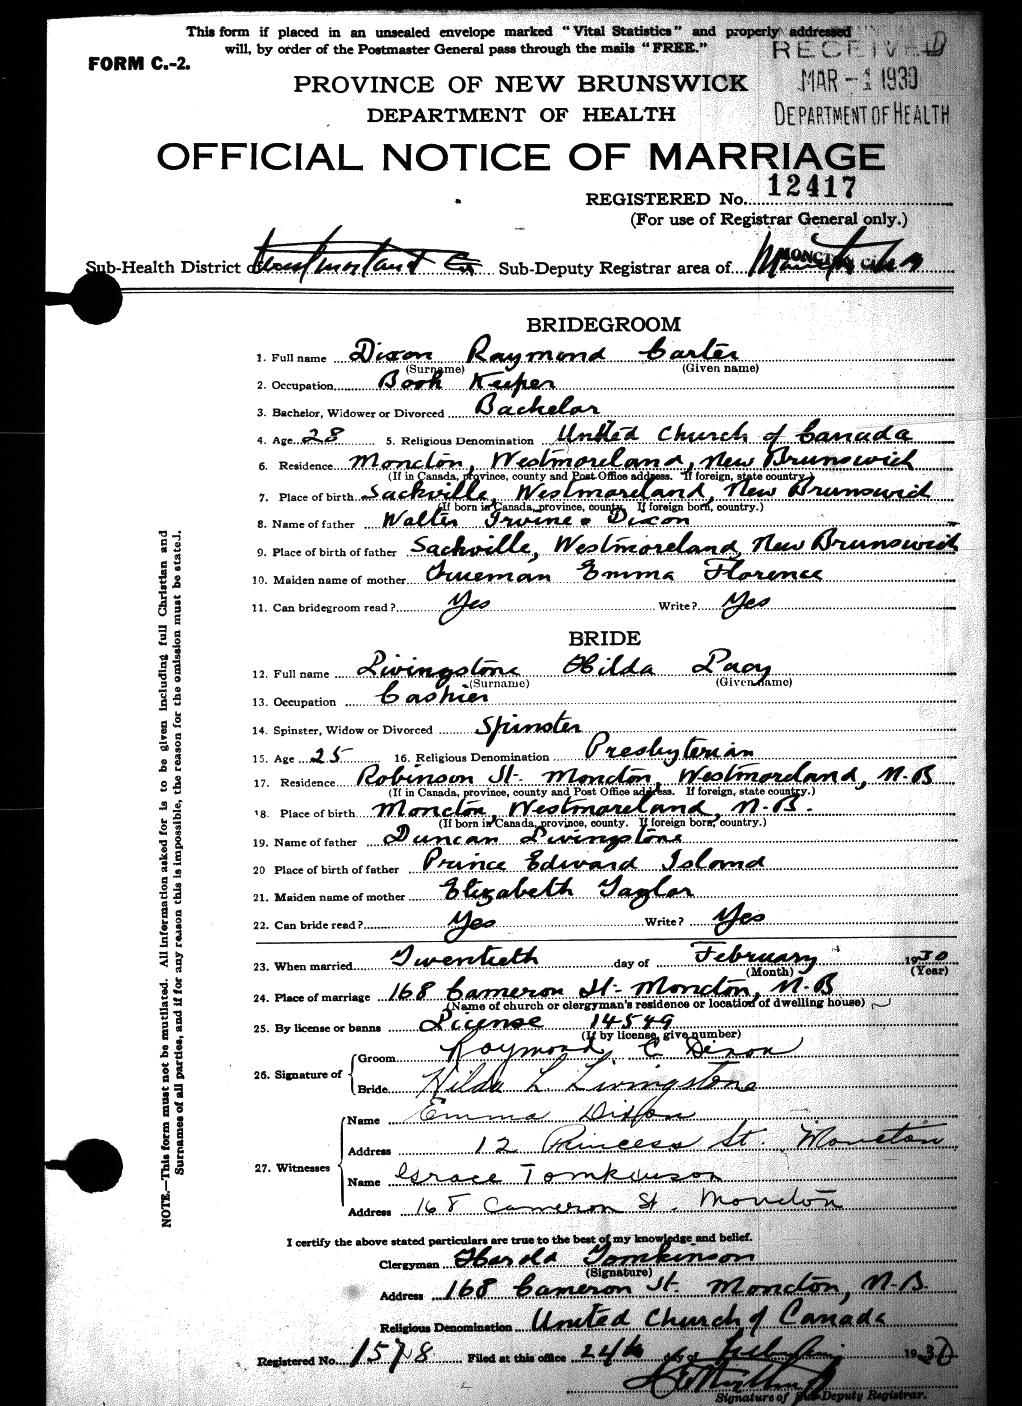 This form if placed in an unsealed envelope marked "Vital Statistics" and properly addressed
will, by order of the Postmaster General pass through the mails "FREE."
FORM C.-2.
RECEIVED
MAR -1 1930
DEPARTMENT OF HEALTH
PROVINCE OF NEW BRUNSWICK
DEPARTMENT OF HEALTH
OFFICIAL NOTICE OF MARRIAGE
REGISTERED No. 12417
(For use of Registrar General only.)
Sub-Health District of Westmorland Co. Sub-Deputy Registrar area of MONCTON City
BRIDEGROOM
1. Full name Dixon Raymond Carter
(Surname) (Given name)
2. Occupation Book Keeper
3. Bachelor, Widower or Divorced Bachelor
4. Age 28 5. Religious Denomination United Church of Canada
6. Residence Moncton, Westmoreland, New Brunswick
(If in Canada, province, county and Post Office address. If foreign, state country.)
7. Place of birth Sackville, Westmoreland, New Brunswick
(If born in Canada, province, county. If foreign born, country.)
8. Name of father Walter Irvine Dixon
9. Place of birth of father Sackville, Westmoreland, New Brunswick
10. Maiden name of mother Trueman Emma Florence
11. Can bridegroom read? Yes Write? Yes
BRIDE
12. Full name Livingstone Hilda Lucy
(Surname) (Given name)
13. Occupation Cashier
14. Spinster, Widow or Divorced Spinster
15. Age 25 16. Religious Denomination Presbyterian
17. Residence Robinson St. Moncton, Westmoreland, N.B
(If in Canada, province, county and Post Office address. If foreign, state country.)
18. Place of birth Moncton, Westmoreland, N.B.
(If born in Canada, province, county. If foreign born, country.)
19. Name of father Duncan Livingstone
20 Place of birth of father Prince Edward Island
21. Maiden name of mother Elizabeth Taylor
22. Can bride read? Yes Write? Yes
23. When married Twentieth day of February 1930
(Month) (Year)
24. Place of marriage 168 Cameron St. Moncton, N.B
(Name of church or clergyman's residence or location of dwelling house)
25. By license or banns License 14549
(If by license, give number)
26. Signature of
Groom Raymond C Dixon
Bride Hilda L Livingstone
27. Witnesses
Name Emma Dixon
Address 12 Princess St. Moncton
Name Grace Tomkinson
Address 168 Cameron St. Moncton
I certify the above stated particulars are true to the best of my knowledge and belief.
Clergyman Harold Tomkinson
(Signature)
Address 168 Cameron St. Moncton, N.B.
Religious Denomination United Church of Canada
Registered No. 1578 Filed at this office 24th day of February 1930
Signature of Sub-Deputy Registrar.
NOTE.—This form must not be mutilated. All information asked for is to be given including full Christian and
Surnames of all parties, and if for any reason this is impossible, the reason for the omission must be stated.